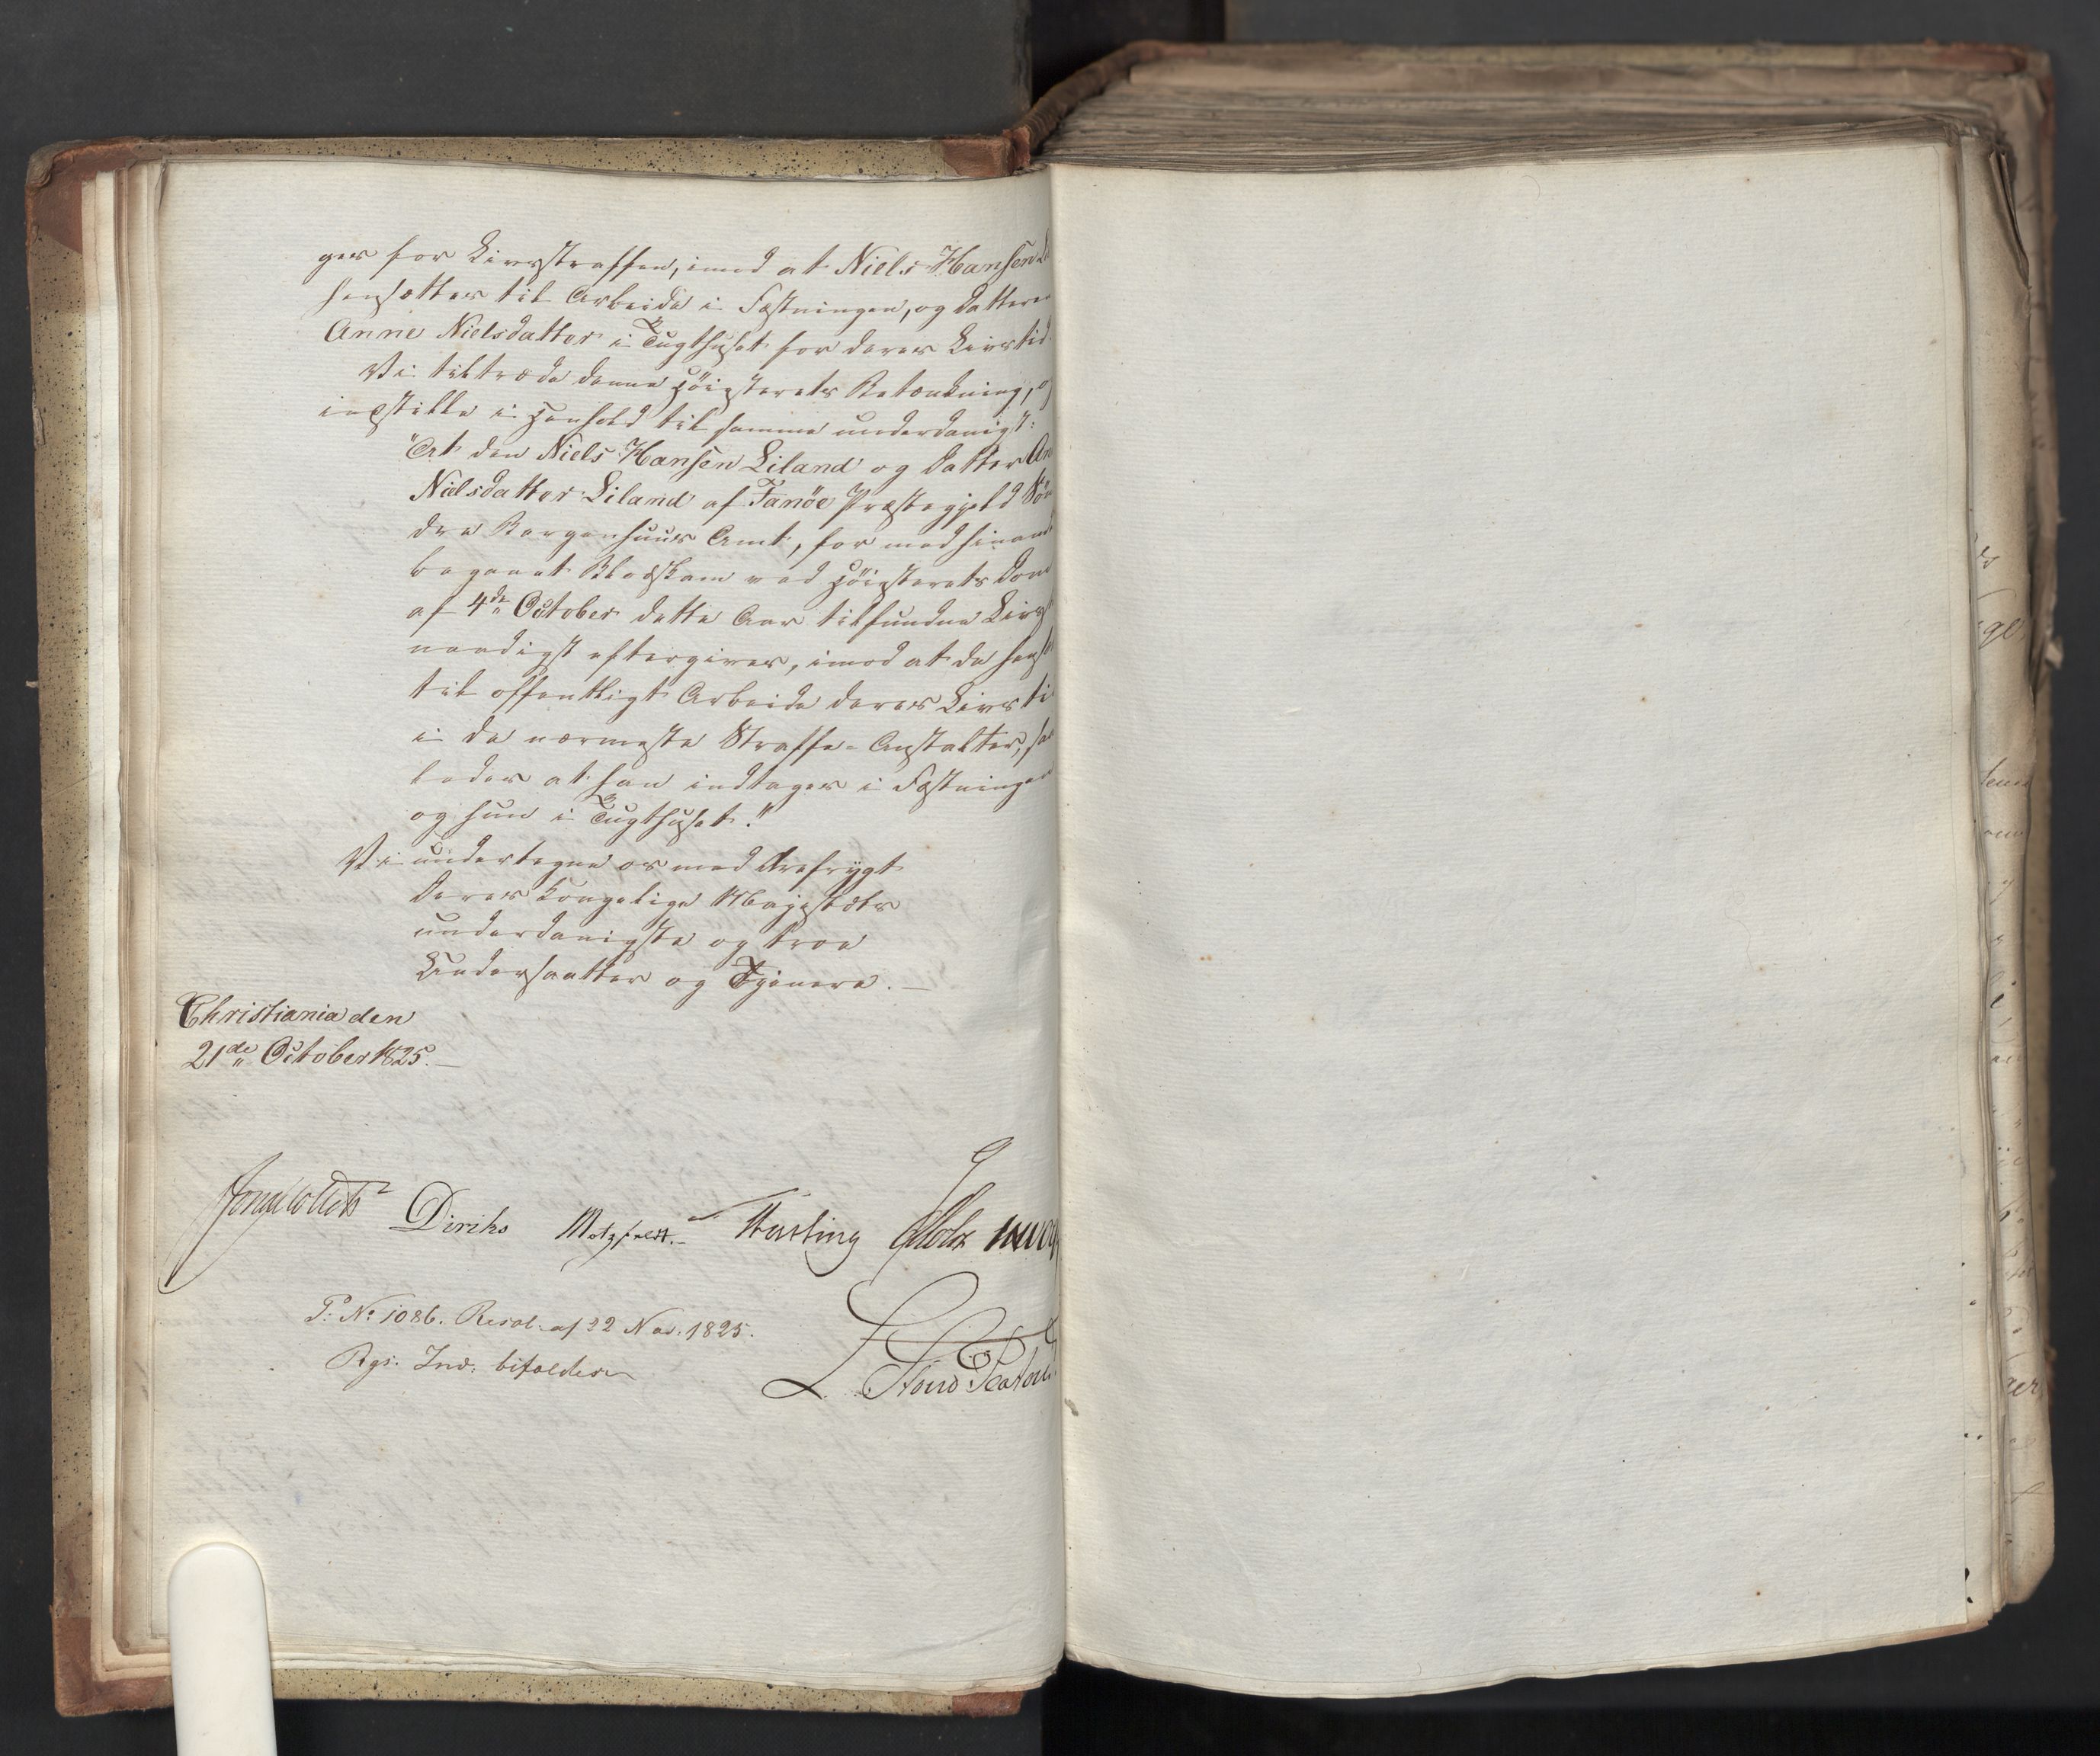 ges for Livsstraffen, imod at Niels Hansen
hensættes til Arbeide i Fæstningen, og Datteren
Anne Nielsdatter i Tugthuset for deres Livstid.
Vi tiltræde denne Höiesterets Betænkning, og
indstille i Henhold til samme underdanigst:
"At den Niels Hansen Liland og Datter An
Nielsdatter Liland af Fanöe Præstegjeld Sön
dre Bergenhuus Amt, for med hinanden
begaaet Blodskam ved Höiesterets Dom
af 4de October dette Aar tilfundne Livs
naadigst eftergives, imod at de hen
til offentligt Arbeide deres Livsti
i de nærmeste Straffe-Anstalter, saa
ledes at han indtages i Fæstningen
og hun i Tugthuset."
Vi undertegne os med Ærefrygt
Deres Kongelige Majestæts
underdanigste og troe
Undersaatter og Tjenere.—
Christiania den
21de October 1825.—
Jonas Collett Diriks Motzfeldt. Fasting
P: No 1086. Resol. af 22 Nov. 1825.
Rgs. Ind: bifaldes